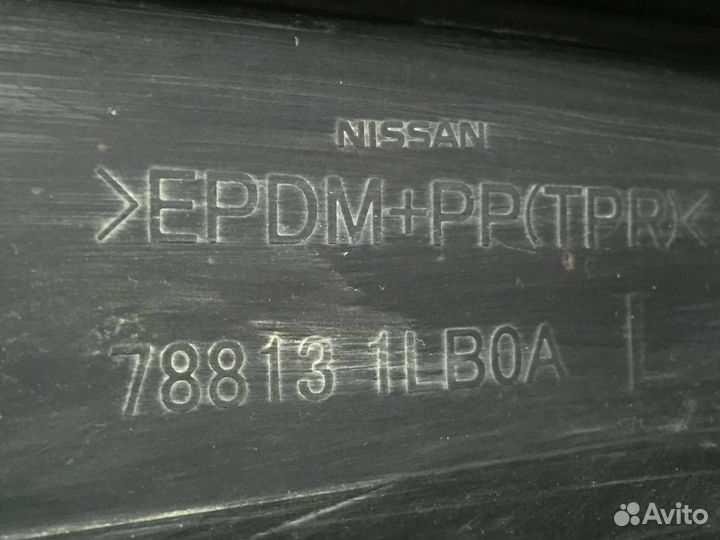 NISSAN
>EPDM+PP(TPR)<
78813 1LB0A L
Avito